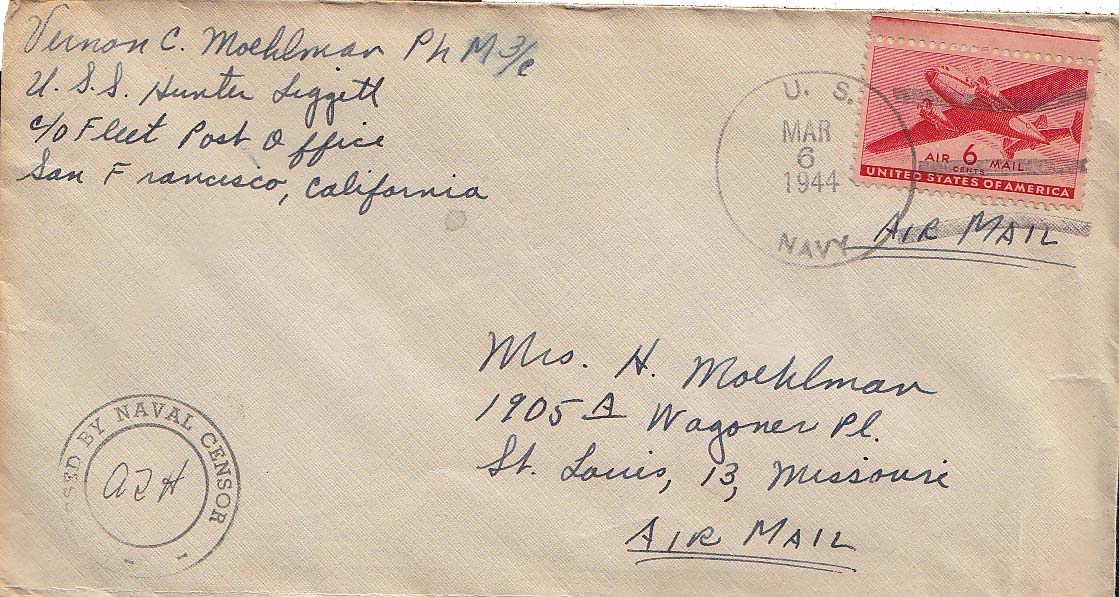 Vernon C. Moehlman Ph M 3/c
U. S. S. Hunter Liggett
c/o Fleet Post Office
San Francisco, California
U. S.
MAR
6
1944
NAVY
AIR 6 MAIL
CENTS
UNITED STATES OF AMERICA
AIR MAIL
Mrs. H. Moehlman
1905 A Wagoner Pl.
St. Louis, 13, Missouri
AIR MAIL
BY NAVAL CENSOR